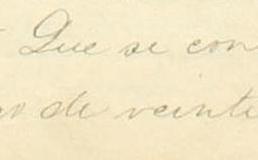 Que se con
de veinte